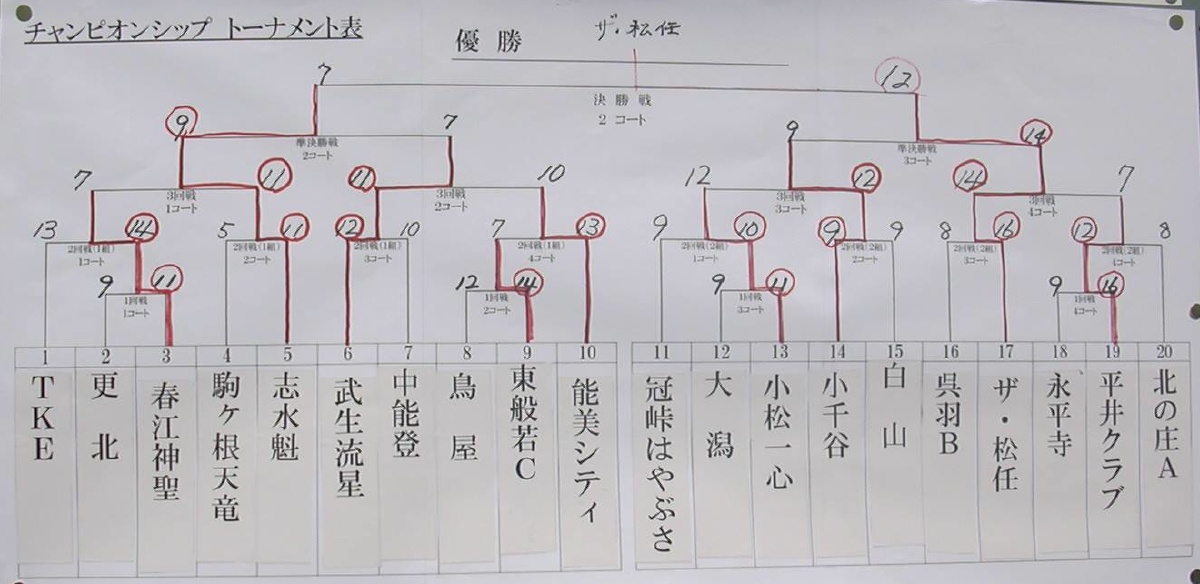 チャンピオンシップ トーナメント表
優勝 ザ・松任
7 12
決勝戦
2 コート
9 7 9 14
準決勝戦 準決勝戦
2コート 3コート
7 11 11 10 12 12 14 7
3回戦 3回戦 3回戦 3回戦
1コート 2コート 3コート 4コート
13 14 5 11 12 10 7 13 9 10 9 9 8 16 12 8
2回戦(1組) 2回戦(1組) 2回戦(1組) 2回戦(1組) 2回戦(2組) 2回戦(2組) 2回戦(2組) 2回戦(2組)
1コート 2コート 3コート 4コート 1コート 2コート 3コート 4コート
9 11 12 14 9 11 9 16
1回戦 1回戦 1回戦 1回戦
1コート 2コート 3コート 4コート
1 2 3 4 5 6 7 8 9 10 11 12 13 14 15 16 17 18 19 20
TKE
更北
春江神聖
駒ヶ根天竜
志水魁
武生流星
中能登
鳥屋
東般若C
能美シティ
冠峠はやぶさ
大潟
小松一心
小千谷
白山
呉羽B
ザ・松任
永平寺
平井クラブ
北の庄A